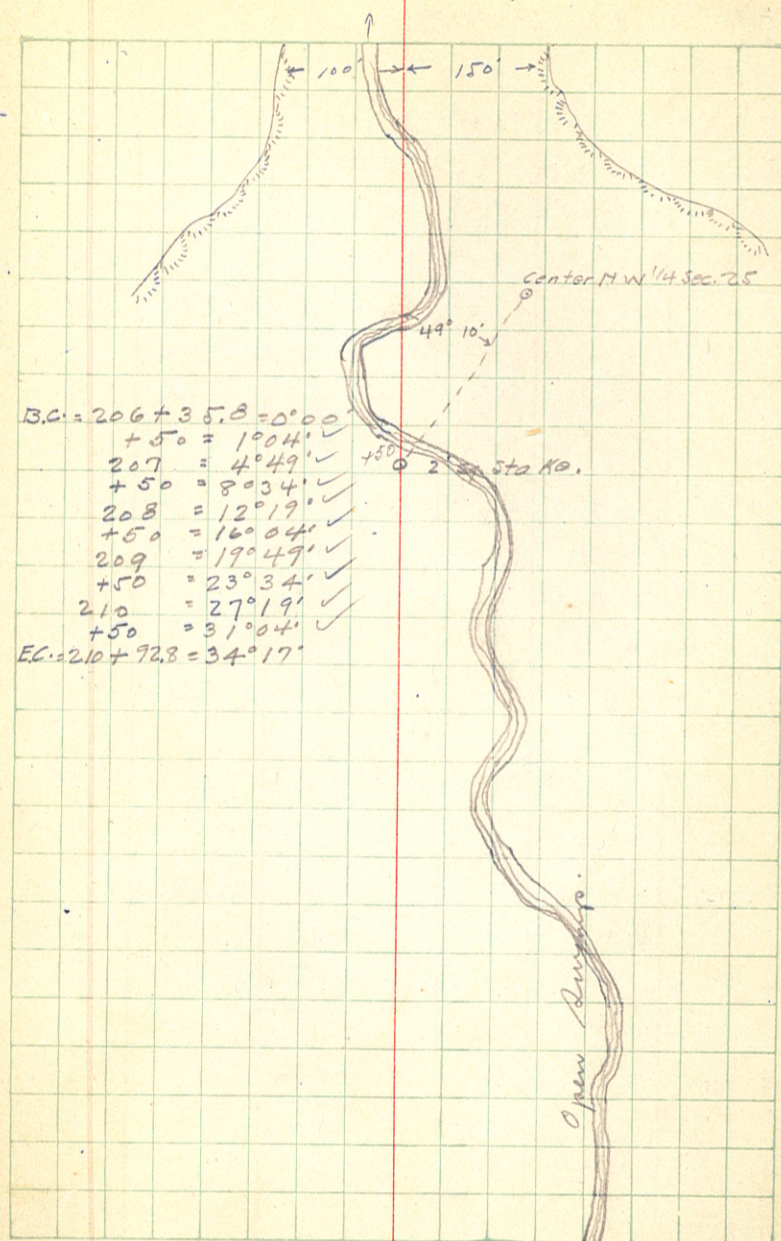 100' 150'
Center NW 1/4 Sec. 25
49° 10'
B.C. = 206 + 35.8 = 0°00'
+50 = 1°04' ✓
207 = 4°49' ✓
+50 = 8°34' ✓
208 = 12°19' ✓
+50 = 16°04' ✓
209 = 19°49' ✓
+50 = 23°34' ✓
210 = 27°19' ✓
+50 = 31°04' ✓
E.C. = 210 + 92.8 = 34°17'
+50
2' Stake.
Open Swamp.